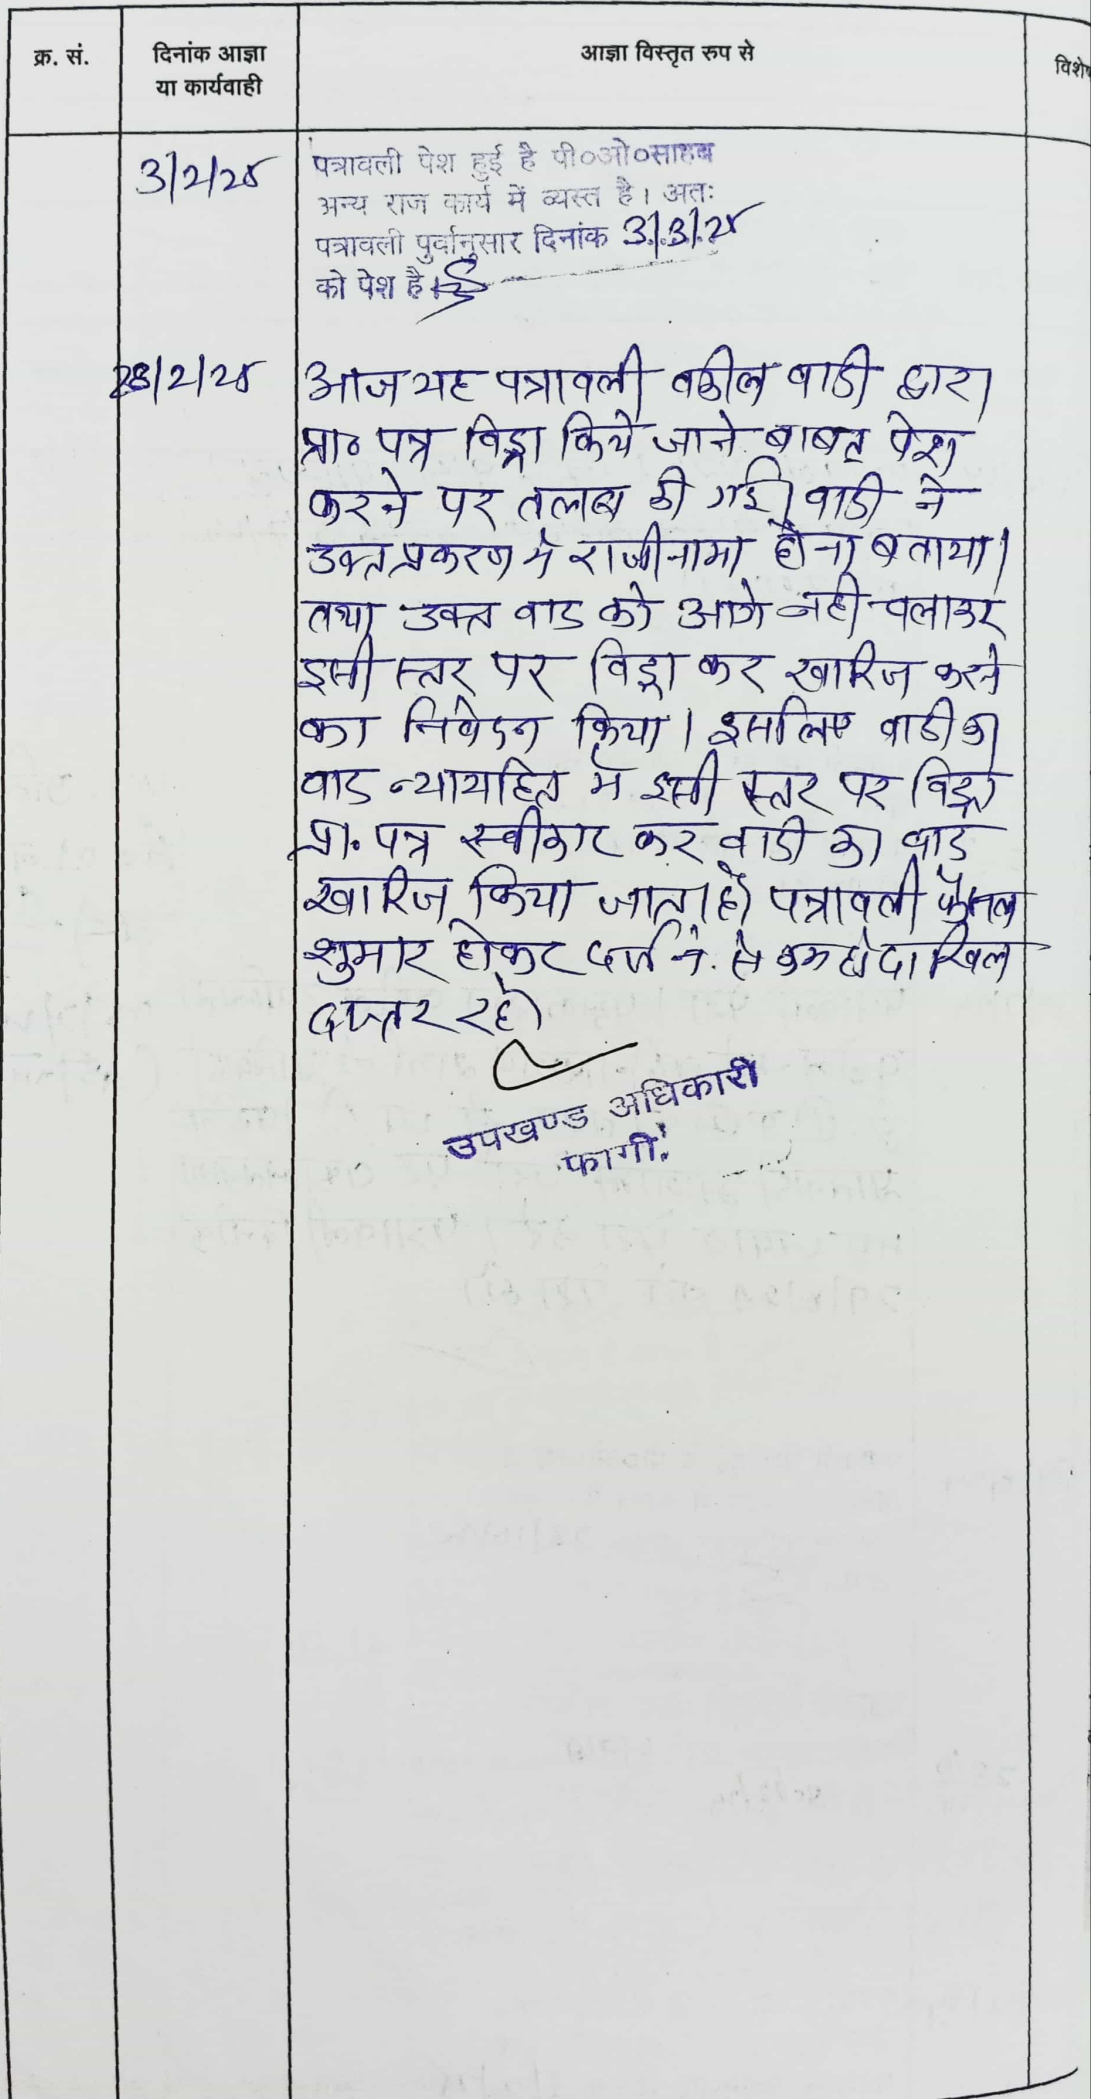 क्र. सं.
दिनांक आज्ञा
या कार्यवाही
आज्ञा विस्तृत रुप से
विशेष
3/2/25
पत्रावली पेश हुई है पी०ओ०साहब
अन्य राज कार्य में व्यस्त है। अतः
पत्रावली पुर्वानुसार दिनांक 3/3/25
को पेश है।
28/2/25
आज यह पत्रावली वकील वादी द्वारा
प्रा० पत्र विड्रा किये जाने बाबत पेश
करने पर तलब की गई। वादी ने
उक्त प्रकरण में राजीनामा होना बताया।
तथा उक्त वाद को आगे नही चलाकर
इसी स्तर पर विड्रा कर खारिज करने
का निवेदन किया। इसलिए वादी का
वाद न्यायहित में इसी स्तर पर विड्रा
प्रा. पत्र स्वीकार कर वादी का वाद
खारिज किया जाता है। पत्रावली फैसल
शुमार होकर दर्ज नं. से कम हो दाखिल
दफ्तर रहे।
उपखण्ड अधिकारी
फागी